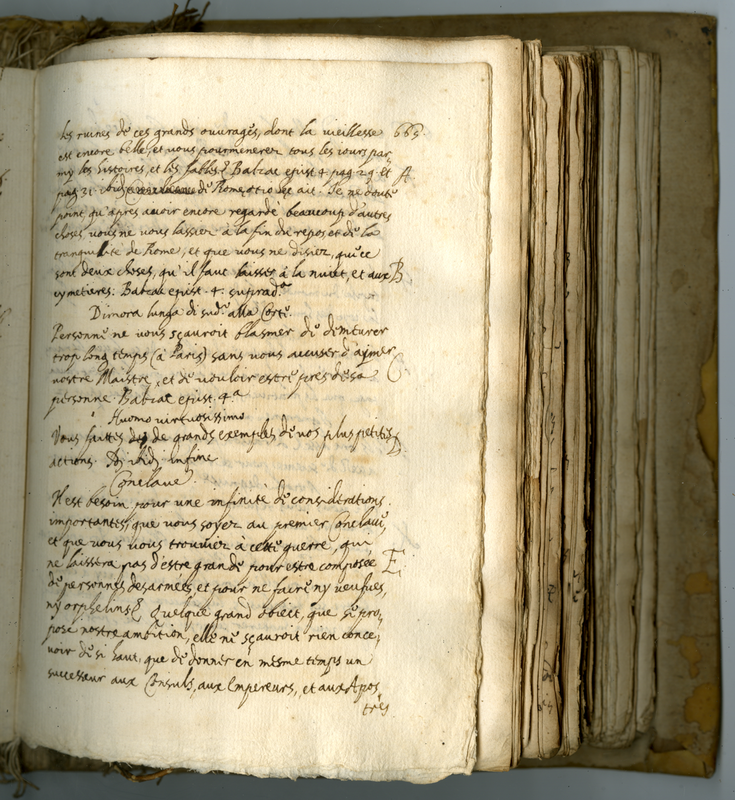 les ruines de ces grands ouvrages, dont la vieillesse 665.
est encore belle, et vous pourmenerez tous les iours par-
my les histoires, et les fables. Balzac epist. 4 pag 29 et A
pag 31 ibid. di Roma otio etc ait. Je ne doute
point qu'apres avoir encore regardé beaucoup d'autres
choses vous ne vous lassiez à la fin du repos et de la
tranquilité de Rome, et que vous ne disiez, que ce
sont deux choses, qu'il faut laisser à la nuict, et aux B
cymetieres: Balzac epist. 4. suprad.ª
Dimora lunga di sud.º alla Corte.
Personne ne vous sçauroit blasmer de demeurer
trop long temps (à Paris) sans vous accuser d'aymer
nostre Maistre, et de vouloir estre pres de sa C
personne. Balzac epist. 4.ª
Huomo virtuosissimo
Vous faittes de grands exemples de vos plus petites D
actions. ibid. in fine
Conclave.
Il est besoin pour une infinité de considerations
importantes, que vous soyez au premier Conclave,
et que vous vous trouviez à cette guerre, qui
ne laissera pas d'estre grande pour estre composée E
de personnes desarmées, et pour ne faire ny veufues,
ny orphelins. Quelque grand obiect, que se pro-
pose nostre ambition, elle ne sçauroit rien conce-
voir de si haut, que de donner en mesme temps un
successeur aux Consuls, aux Empereurs, et aux Apos
tres